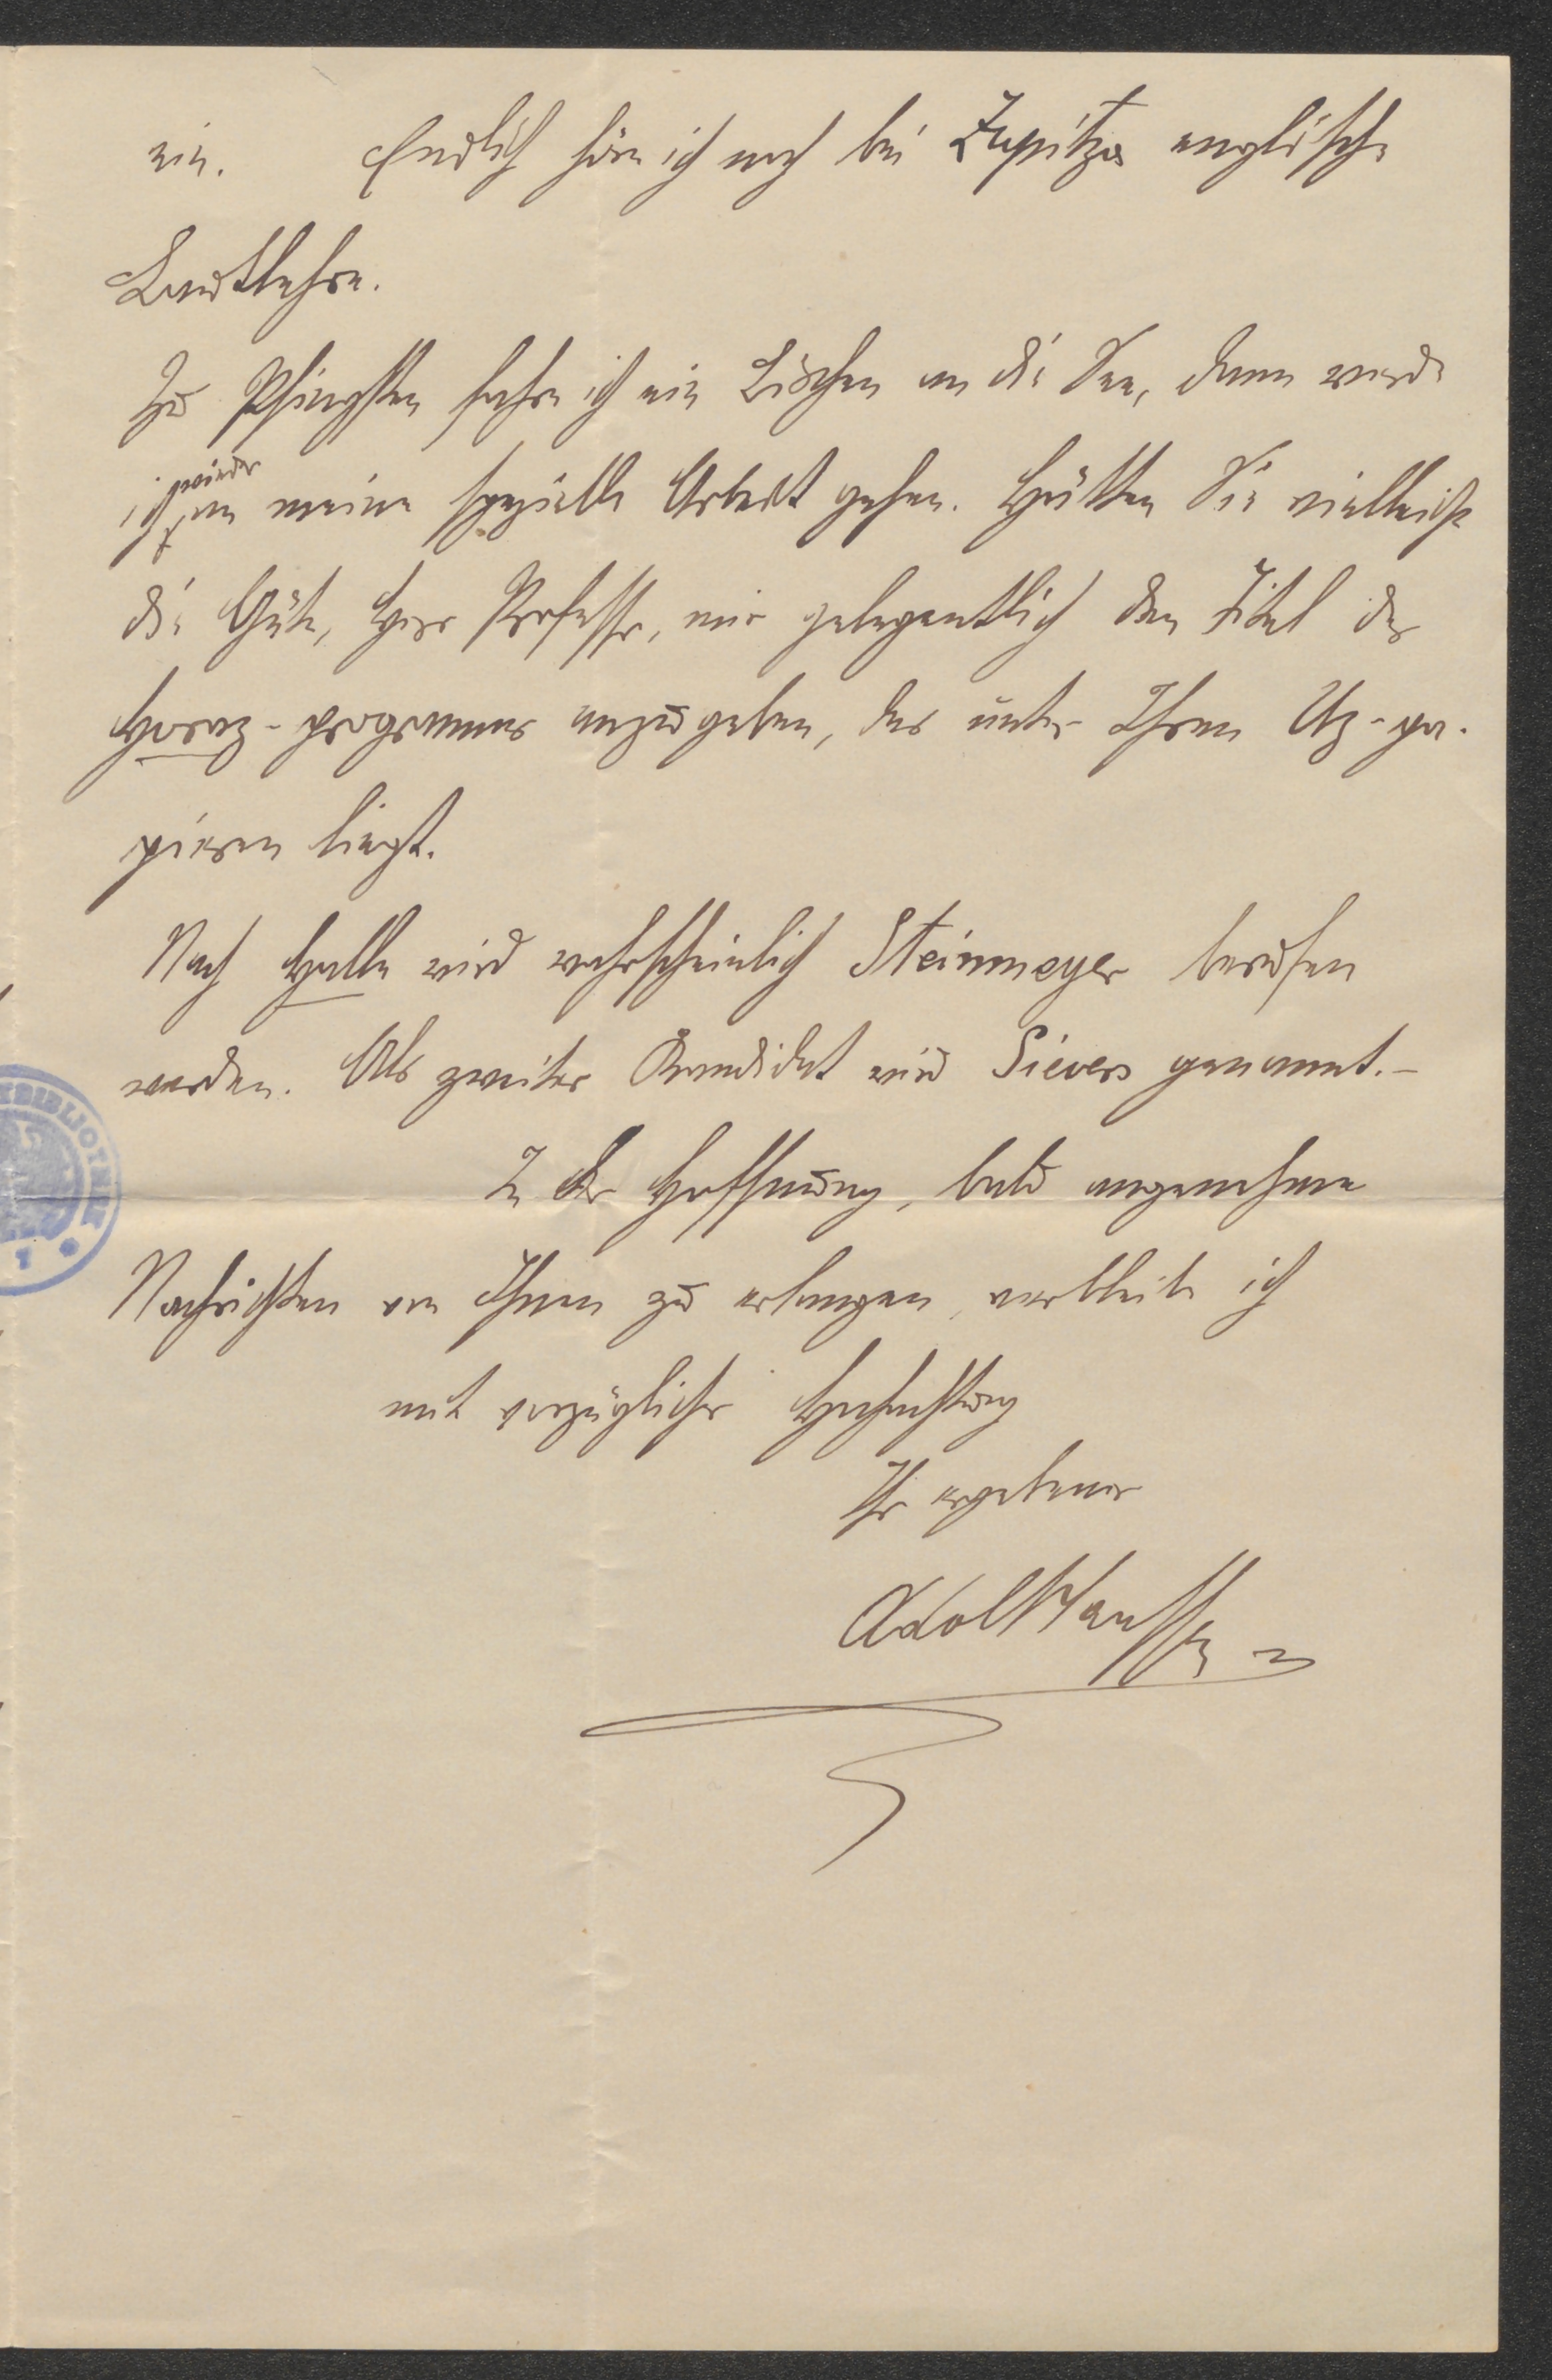 ein. Endlich höre ich noch bei Zupitza englische
Lautlehre.
Zu Pfingsten fahre ich ein Bischen an die See, dann werde
ich wieder an meine spezielle Arbeit gehen. Hätten Sie vielleicht
die Güte, Herr Professor, mir gelegentlich den Titel des
Horaz-programmes anzugeben, das unter Ihren Uz-pa-
pieren liegt.
Nach Halle wird wahrscheinlich Steinmeyer berufen
werden. Als zweiter Kandidat wird Sievers genannt. –
In der Hoffnung, bald angenehme
Nachrichten von Ihnen zu erlangen, verbleibe ich
mit vorzüglicher Hochachtung
Ihr ergebener
Adolf Hauffen